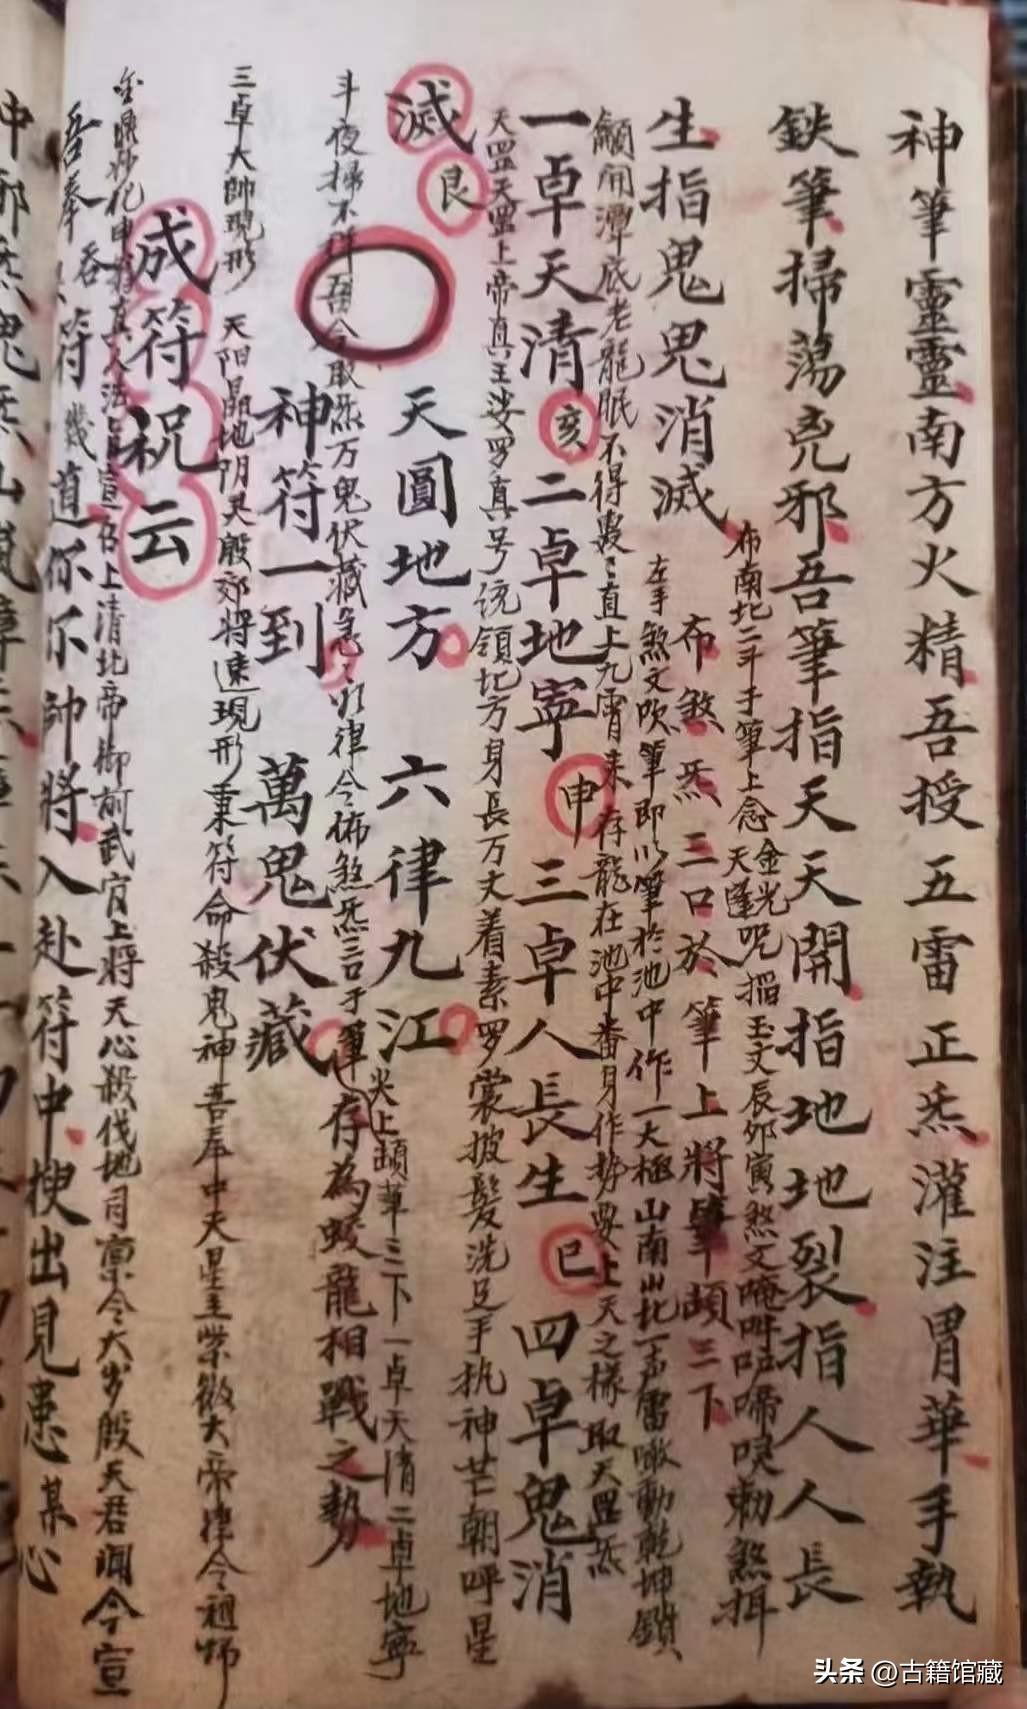 神筆靈靈南方火精吾授五雷正炁灌注胃華手執
鉄筆掃蕩兇邪吾筆指天天開指地地裂指人人長
布南北二斗于筆上念金光天蓬咒搯玉文辰卯寅煞文唵吽吽啼唳勅煞揖
生指鬼鬼消滅
布煞炁三口於筆上將筆頓三下
左手煞文吹筆即以筆於池中作一大極山南山北一声雷噉動乾坤鎖
龥開潭底老龍眠不得最:直上九霄来存龍在池中番身作势要上天之樣取天罡炁
一卓天清亥二卓地寧申三卓人長生巳四卓鬼消
天罡天罡上帝真王婆罗真号统領北方身長万丈着素罗裳披髮洗足手执神芒朝呼星
滅艮
天圓地方 六律九江
斗夜掃不祥吾今取炁万鬼伏藏急:如律令佈煞炁三口于筆尖上頓筆三下一卓天清二卓地寧
神符一到 萬鬼伏藏
存為蛟龍相戰之勢
三卓大帥現形 天阳晶地阴灵殷郊将速現形秉符命殺鬼神吾奉中天星主紫微大帝律令祖师
成符祝云
上清北帝御前武官上將天心殺伐地司禀令大岁殷天君闻令宣
吾奉
符幾道你尔帥將入赴符中捜出見患某心